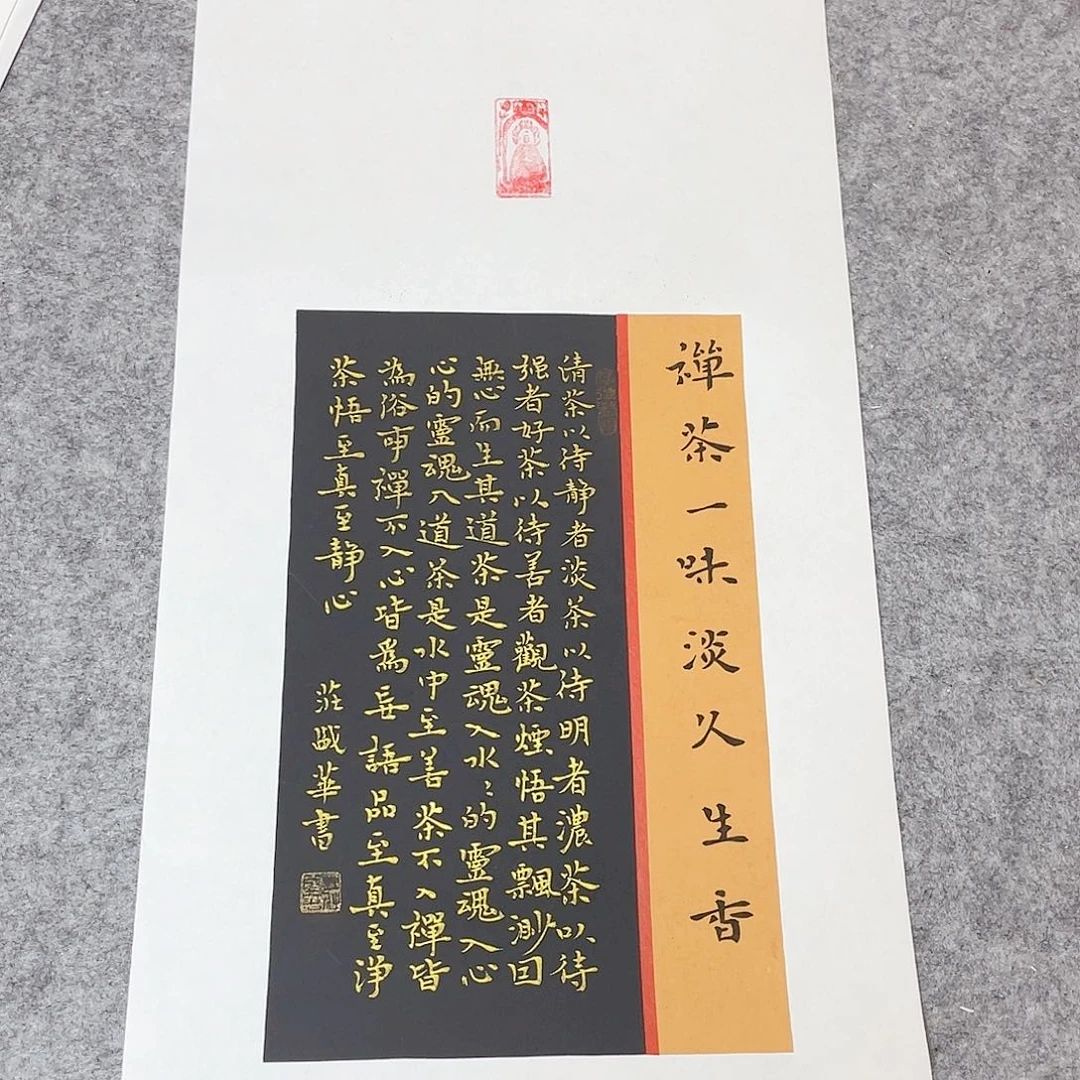 禪茶一味淡久生香
清茶以待静者淡茶以待明者濃茶以待
强者好茶以待善者觀茶煙悟其飄渺囙
無心而生其道茶是靈魂入水〻的靈魂入心
心的靈魂入道茶是水中至善茶不入禪皆
為俗事禪不入心皆為妄語品至真至浄
茶悟至真至静心
莊華書